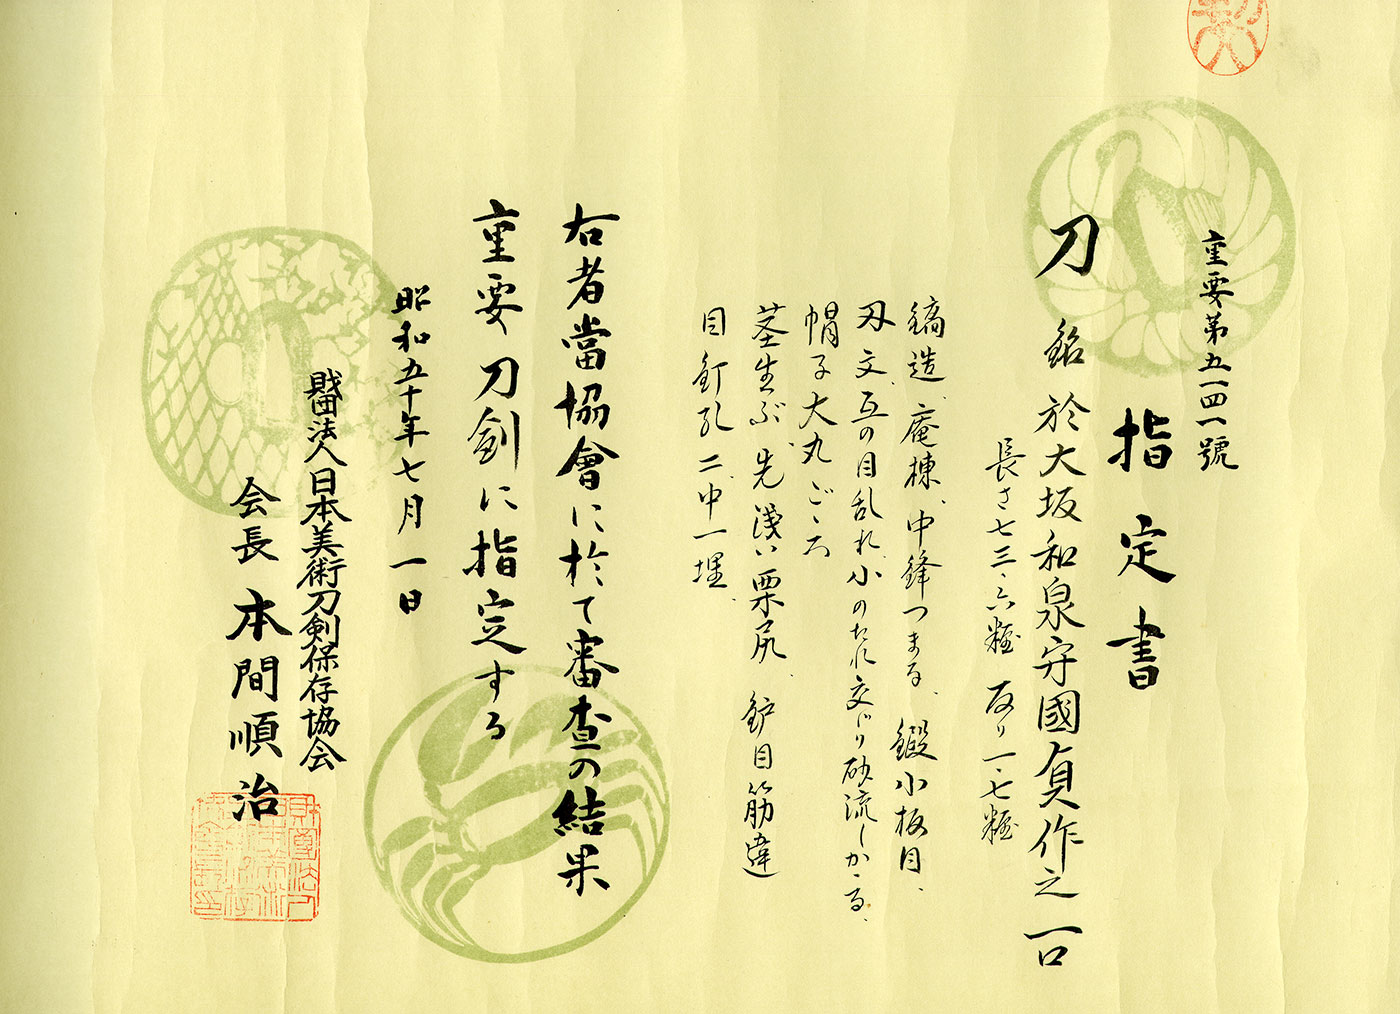 重要第五一四一號
指定書
刀 銘 於大坂和泉守國貞作之 一口
長さ七三・六糎 反り一・七糎
鎬造、庵棟、中鋒つまる、鍛小板目、
刃文、互の目乱れ、小のたれ交じり砂流しかゝる、
帽子大丸ごゝろ
茎生ぶ、先浅い栗尻、鈩目筋違
目釘孔二、中一埋、
右者當協會に於て審査の結果
重要刀剣に指定する
昭和五十年七月一日
財団法人日本美術刀剣保存協会
会長 本間順治